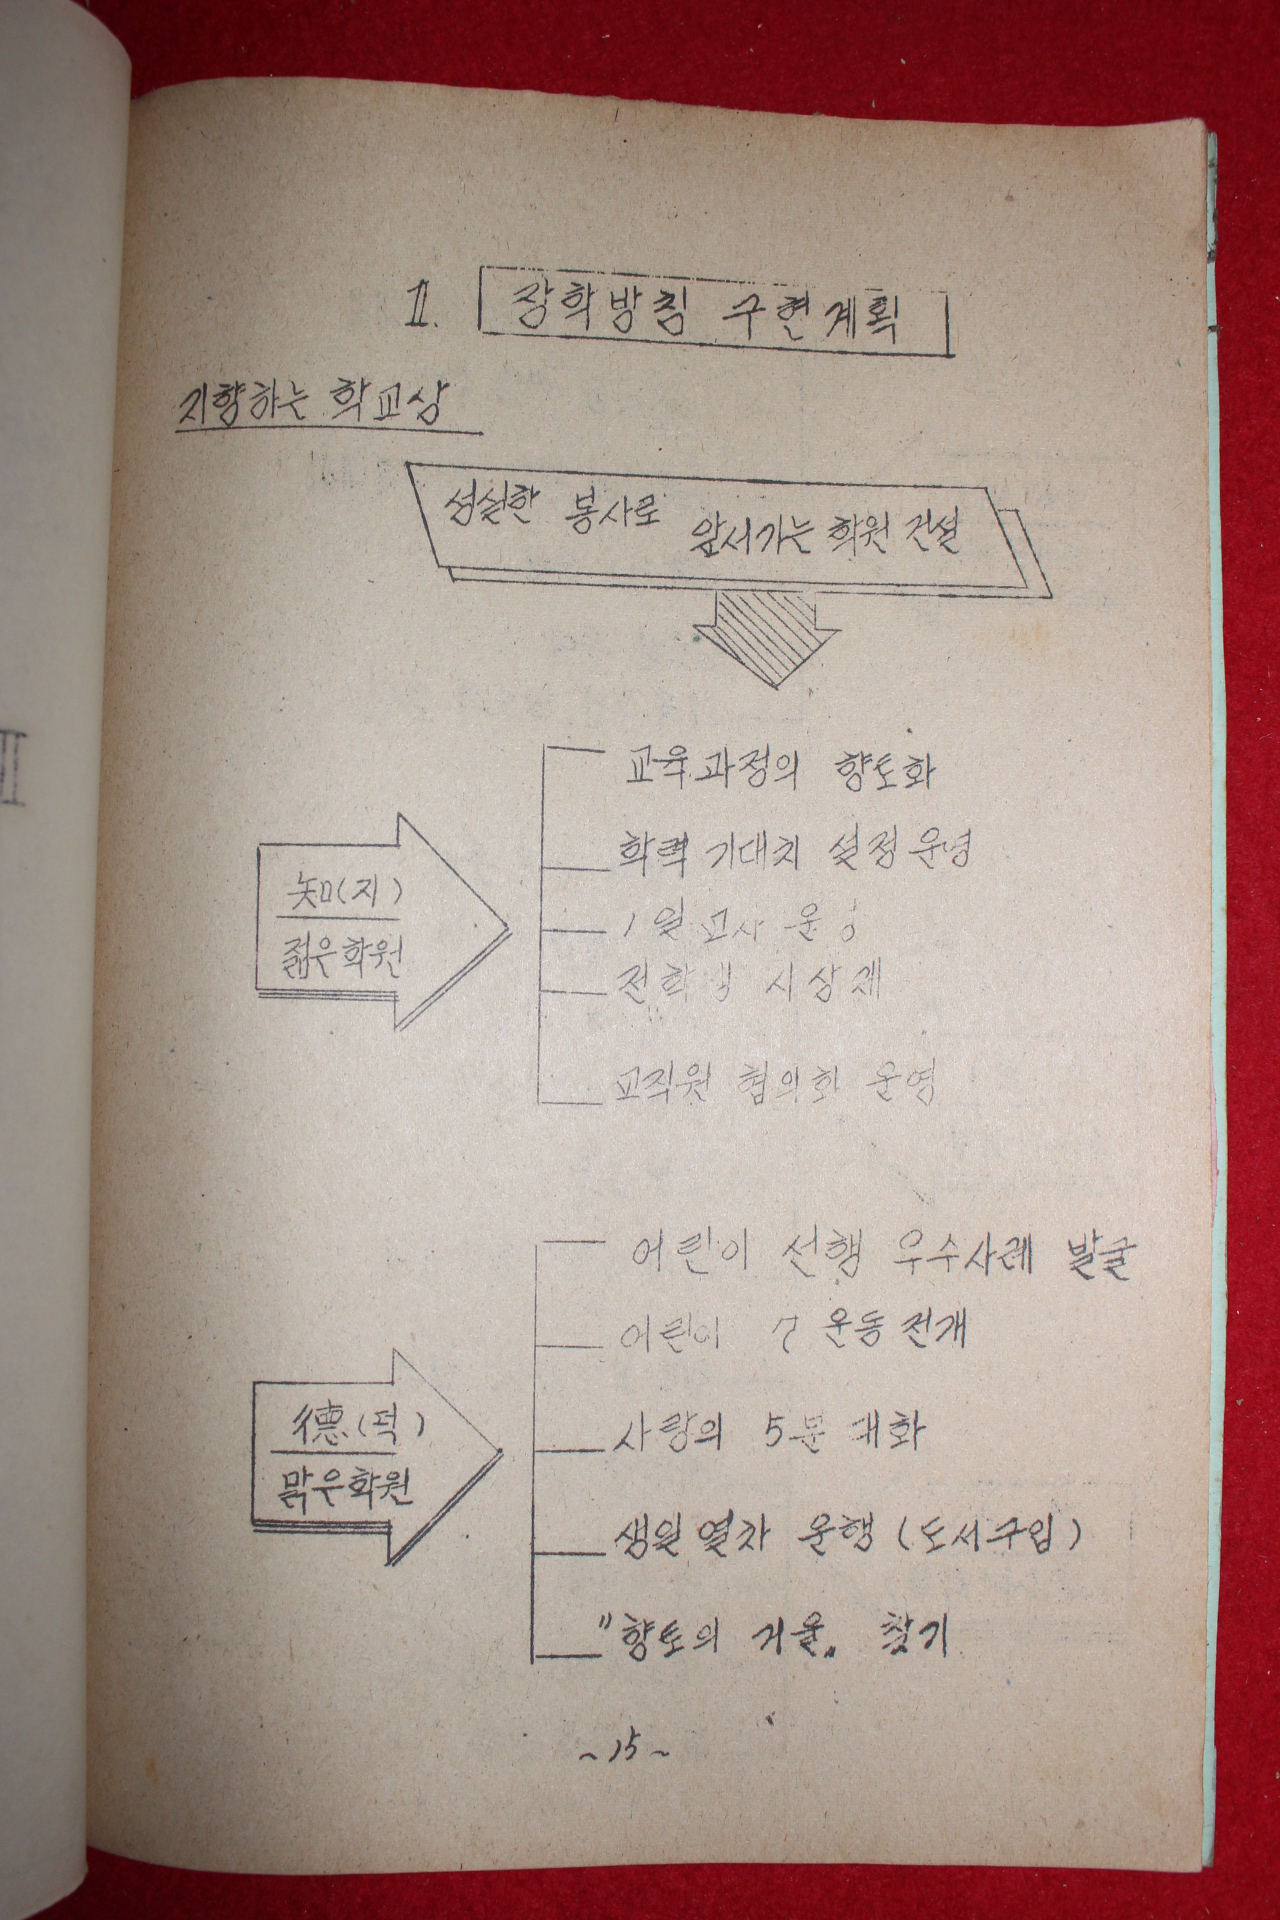 Ⅱ. 장학방침 구현계획
지향하는 학교상
성실한 봉사로 앞서가는 학원 건설
교육과정의 향토화
학력 기대치 설정 운영
知(지)
젊은학원
1일 교사 운영
전학생 시상제
교직원 협의회 운영
어린이 선행 우수사례 발굴
어린이 7 운동 전개
德(덕)
맑은학원
사랑의 5분 대화
생일 열차 운행 (도서구입)
"향토의 거울„ 찾기
~15~